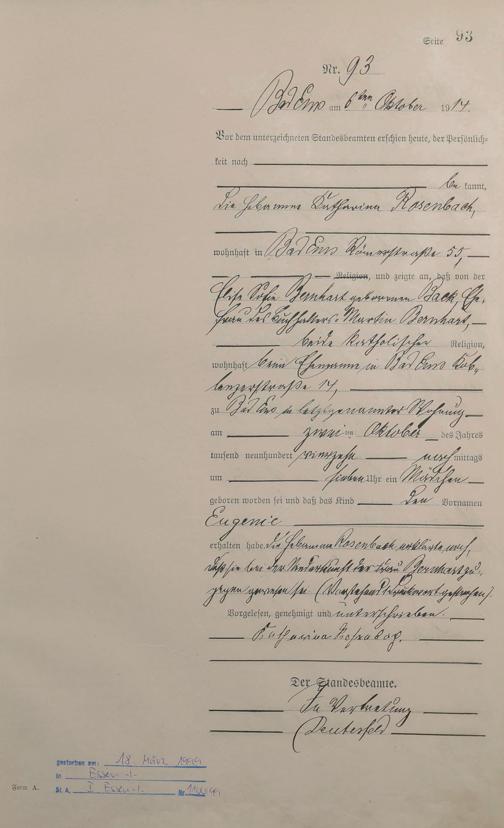 Seite 93
Nr. 93
Bad Ems am 6ten Oktober 1914.
Vor dem unterzeichneten Standesbeamten erschien heute, der Persönlich-
keit nach
be kannt,
die Hebamme Katharina Rosenbach,
wohnhaft in Bad Ems Römerstraße 55,
Religion, und zeigte an, daß von der
Elise Sofie Bernhart geborenen Back, Ehe-
frau des Buchhalters Martin Bernhart,
beide katholischer Religion,
wohnhaft beim Ehemann in Bad Ems Kob-
lenzerstraße 17,
zu Bad Ems in letztgenannter Wohnung
am zwei ten Oktober des Jahres
tausend neunhundert vierzehn nach mittags
um sieben Uhr ein Mädchen
geboren worden sei und daß das Kind den Vornamen
Eugenie
erhalten habe. Die Hebamme Rosenbach erklärte noch,
daß sie bei der Niederkunft der Frau Bernhart zu-
gegen gewesen sei. (Vorstehend Druckwort gestrichen).
Vorgelesen, genehmigt und unterschrieben.
Katharina Rosenbach.
Der Standesbeamte.
In Vertretung
gestorben am: 18. März 1999
in Essen -I-
St. A. I Essen -I- Nr.
Form A.